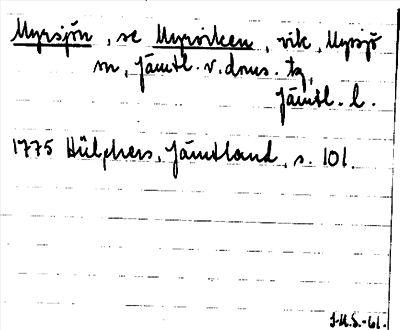 Myrsjön, se Myrviken, vik, Myssjö
sn, Jämtl. v. doms. tg,
Jämtl. l.
1775 Hülphers, Jämtland, s. 101.
J.M.S.-61.